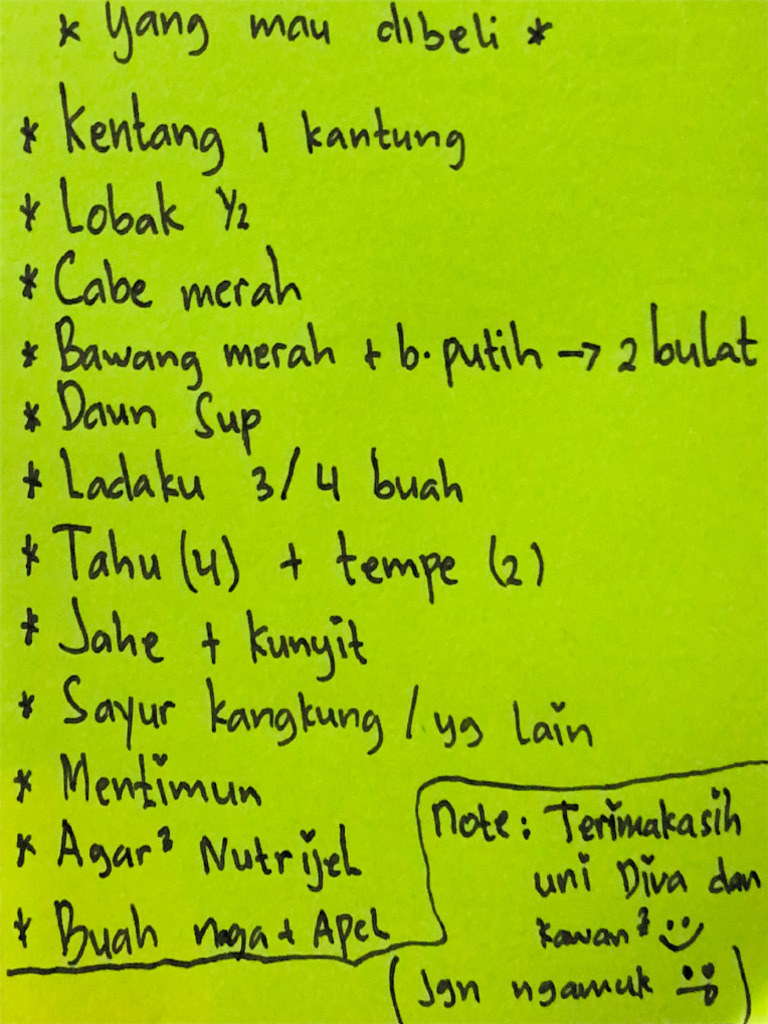 * Yang mau dibeli *
* Kentang 1 kantung
* Lobak 1/2
* Cabe merah
* Bawang merah + b. putih → 2 bulat
* Daun Sup
* Ladaku 3/4 buah
* Tahu (4) + tempe (2)
* Jahe + kunyit
* Sayur kangkung / yg lain
* Mentimun
* Agar² Nutrijel
* Buah naga + Apel
note: Terimakasih
uni Diva dan
kawan² :)
(Jgn ngamuk :p)